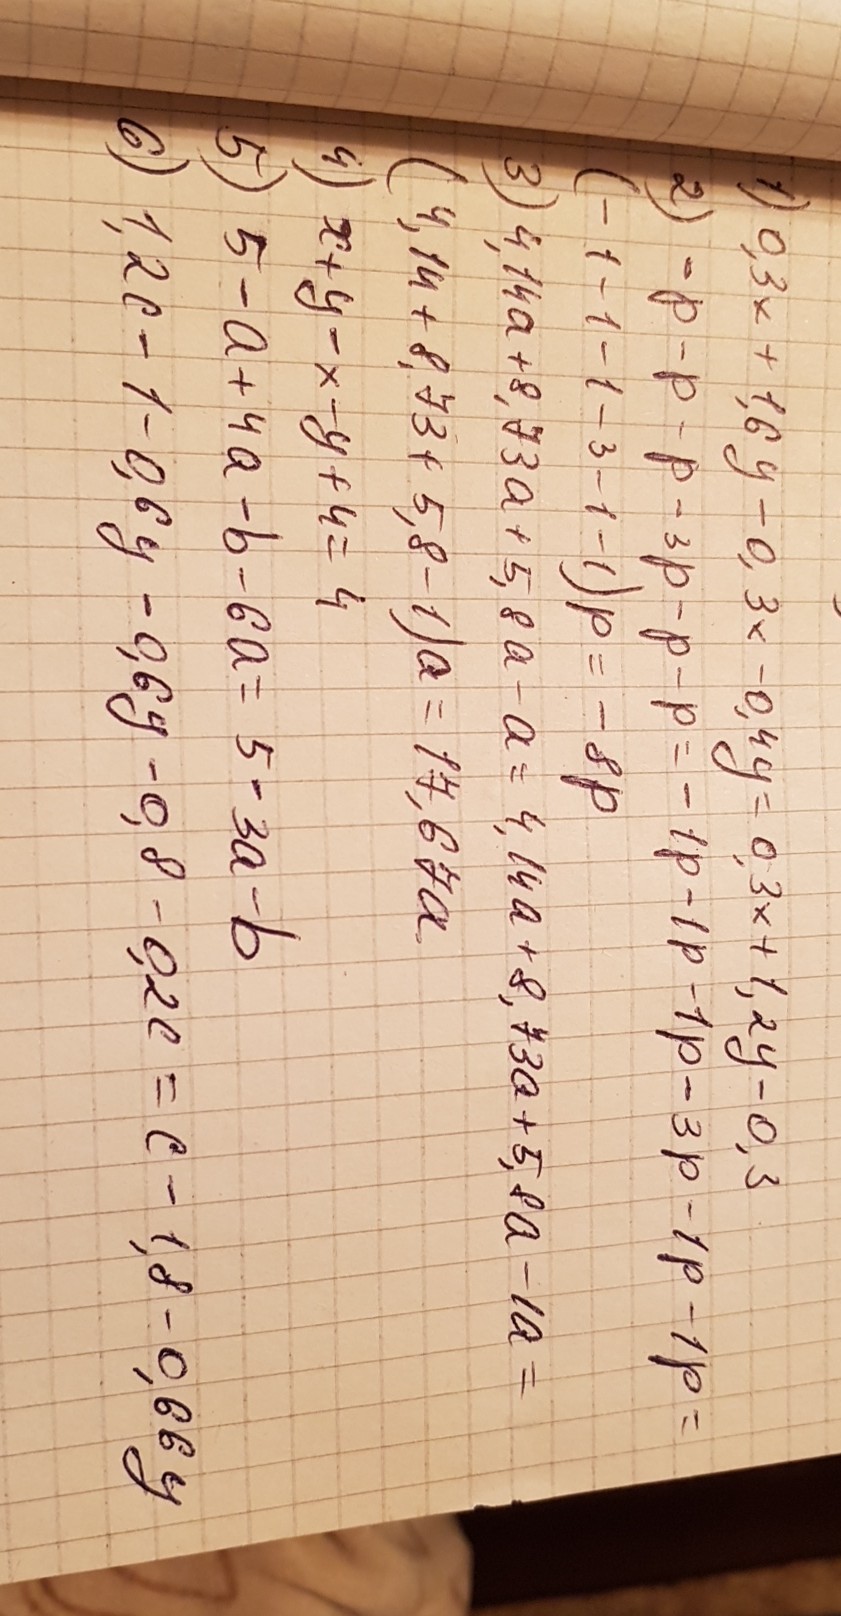 1) 0,3x + 1,6y - 0,3x - 0,4y = 0,3x + 1,2y - 0,3
2) - p - p - p - 3p - p - p = - 1p - 1p - 1p - 3p - 1p - 1p =
(- 1 - 1 - 1 - 3 - 1 - 1)p = - 8p
3) 4,14a + 8,73a + 5,8a - a = 4,14a + 8,73a + 5,8a - 1a =
(4,14 + 8,73 + 5,8 - 1)a = 17,67a
4) x + y - x - y + 4 = 4
5) 5 - a + 4a - b - 6a = 5 - 3a - b
6) 1,2c - 1 - 0,6y - 0,6y - 0,8 - 0,2c = c - 1,8 - 0,66y